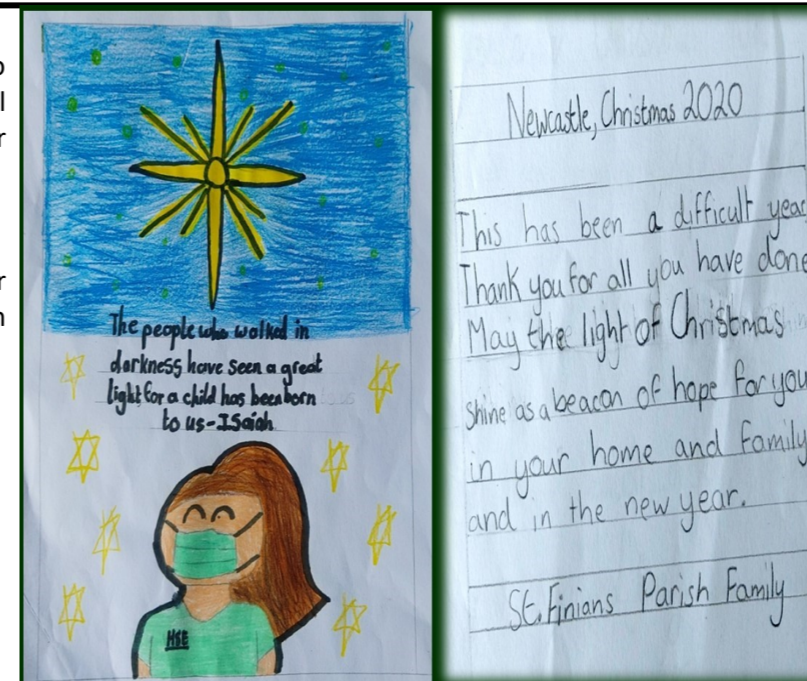 The people who walked in
darkness have seen a great
light for a child has been born
to us-ISaiah
HSE
Newcastle, Christmas 2020
This has been a difficult year
Thank you for all you have done
May the light of Christmas
Shine as a beacon of hope for you
in your home and family
and in the new year.
St. Finians Parish Family